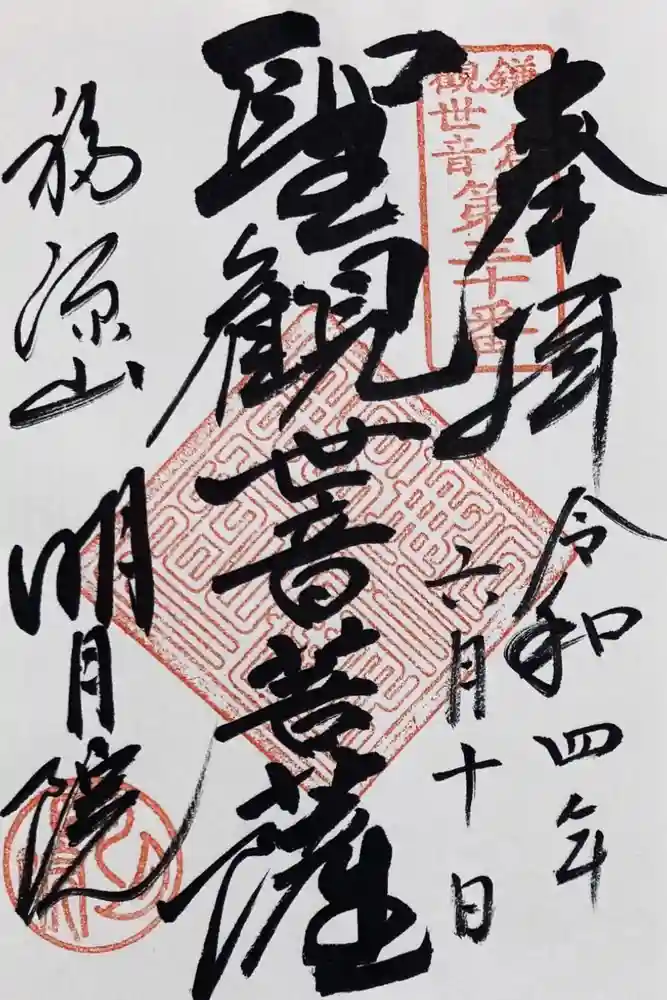 奉拝
鎌倉
観世音第三十番
令和四年
六月十日
聖觀世音菩薩
福源山
明月院